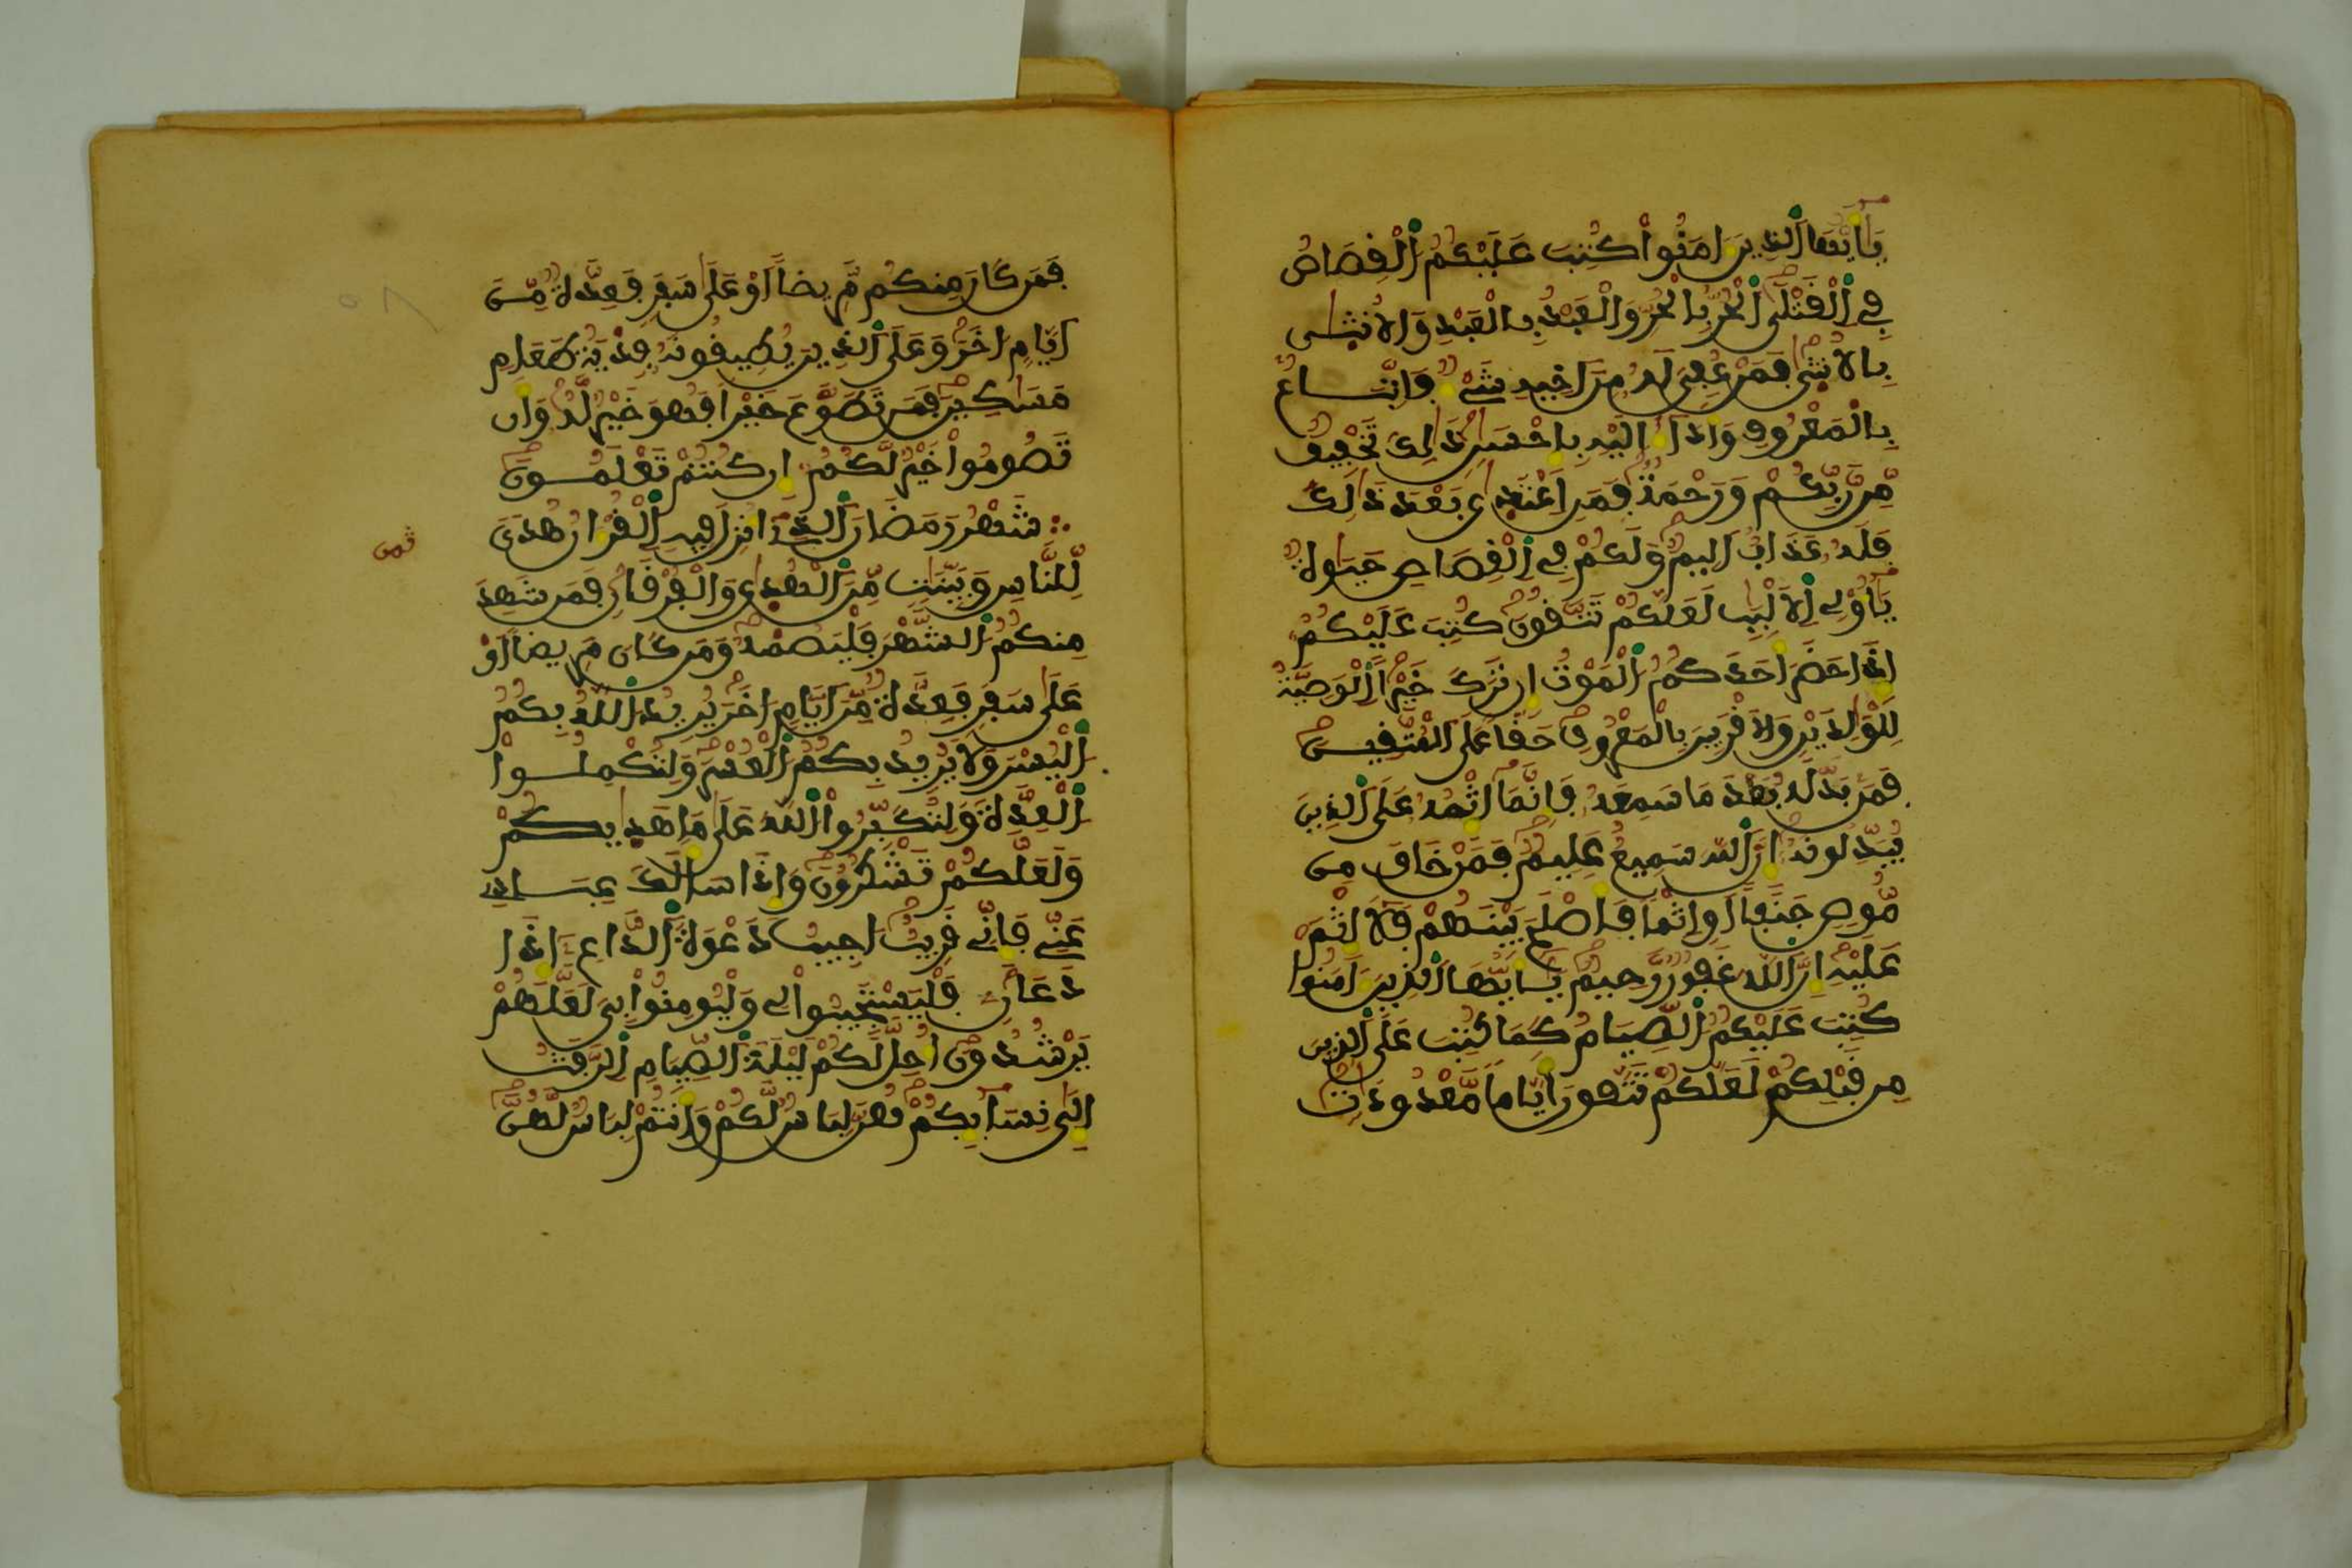 يَٰأَيُّهَا ٱلذِينَ ءَامَنُوا۟ كُتِبَ عَلَيْكُمُ ٱلْقِصَاصُ
فِے ٱلْقَتْلَى ٱلْحُرُّ بِالْحُرِّ وَالْعَبْدُ بِالْعَبْدِ وَالُانثَىٰ
بِالُانثَىٰ فَمَنْ عُفِىَ لَهُۥ مِنَ اخِيهِ شَےْءٌ فَاتِّبَاعٌ
بِالْمَعْرُوفِ وَأَدَآءٌ الَيْهِ بِإِحْسَٰنٍ ذَٰلِكَ تَخْفِيفٌ
مِّن رَّبِّكُمْ وَرَحْمَةٌ فَمَنِ اعْتَدَىٰ بَعْدَ ذَٰلِكَ
فَلَهُۥ عَذَابٌ اَلِيمٌ وَلَكُمْ فِے ٱلْقِصَاصِ حَيَوٰةٌ
يَٰأُو۟لِے ٱلَالْبَٰبِ لَعَلَّكُمْ تَتَّقُونَ كُتِبَ عَلَيْكُمُۥ
إِذَا حَضَرَ أَحَدَكُمُ ٱلْمَوْتُ إِن تَرَكَ خَيْراً ٱلْوَصِيَّةُ
لِلْوَٰلِدَيْنِ وَالَاقْرَبِينَ بِالْمَعْرُوفِ حَقّاً عَلَى ٱلْمُتَّقِينَ
فَمَنۢ بَدَّلَهُۥ بَعْدَ مَا سَمِعَهُۥ فَإِنَّمَآ إِثْمُهُۥ عَلَى ٱلذِينَ
يُبَدِّلُونَهُۥٓ إِنَّ ٱللَّهَ سَمِيعٌ عَلِيمٌ فَمَنْ خَافَ مِن
مُّوصٍ جَنَفاً اَوِ اثْماً فَأَصْلَحَ بَيْنَهُمْ فَلَآ إِثْمَ
عَلَيْهِ إِنَّ ٱللَّهَ غَفُورٌ رَّحِيمٌ يَٰأَيُّهَا ٱلذِينَ ءَامَنُوا۟
كُتِبَ عَلَيْكُمُ ٱلصِّيَامُ كَمَا كُتِبَ عَلَى ٱلذِينَ
مِن قَبْلِكُمْ لَعَلَّكُمْ تَتَّقُونَ أَيَّاماً مَّعْدُودَٰتٍ
فَمَن كَانَ مِنكُم مَّرِيضاً اَوْ عَلَىٰ سَفَرٍ فَعِدَّةٌ مِّنَ
ايَّامٍ اخَرَ وَعَلَى ٱلذِينَ يُطِيقُونَهُۥ فِدْيَةُ طَعَامِ
مَسَٰكِينَ فَمَن تَطَوَّعَ خَيْراً فَهُوَ خَيْرٌ لَّهُۥ وَأَن
تَصُومُوا۟ خَيْرٌ لَّكُمُۥٓ إِن كُنتُمْ تَعْلَمُونَ
شَهْرُ رَمَضَانَ ٱلذِےٓ أُنزِلَ فِيهِ ٱلْقُرْءَانُ هُدىً
لِّلنَّاسِ وَبَيِّنَٰتٍ مِّنَ ٱلْهُدَىٰ وَالْفُرْقَانِ فَمَن شَهِدَ
مِنكُمُ ٱلشَّهْرَ فَلْيَصُمْهُ وَمَن كَانَ مَرِيضاً اَوْ
عَلَىٰ سَفَرٍ فَعِدَّةٌ مِّنَ ايَّامٍ اخَرَ يُرِيدُ ٱللَّهُ بِكُمُ
ٱلْيُسْرَ وَلَا يُرِيدُ بِكُمُ ٱلْعُسْرَ وَلِتُكْمِلُوا۟
ٱلْعِدَّةَ وَلِتُكَبِّرُوا۟ ٱللَّهَ عَلَىٰ مَا هَدَىٰكُمْ
وَلَعَلَّكُمْ تَشْكُرُونَ وَإِذَا سَأَلَكَ عِبَادِے
عَنِّے فَإِنِّے قَرِيبٌ اجِيبُ دَعْوَةَ ٱلدَّاعِۦٓ إِذَا
دَعَانِۦ فَلْيَسْتَجِيبُوا۟ لِے وَلْيُومِنُوا۟ بِے لَعَلَّهُمْ
يَرْشُدُونَ أُحِلَّ لَكُمْ لَيْلَةَ ٱلصِّيَامِ ٱلرَّفَثُ
إِلَىٰ نِسَآئِكُمْ هُنَّ لِبَاسٌ لَّكُمْ وَأَنتُمْ لِبَاسٌ لَّهُنَّ
ثمن